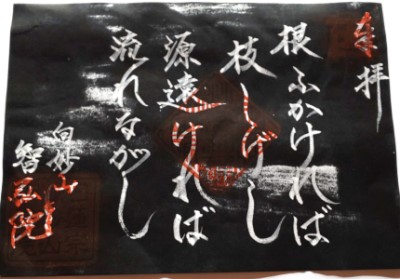 奉拝
根ふかければ
枝しげし
源遠ければ
流れながし
白妙山
智弘院